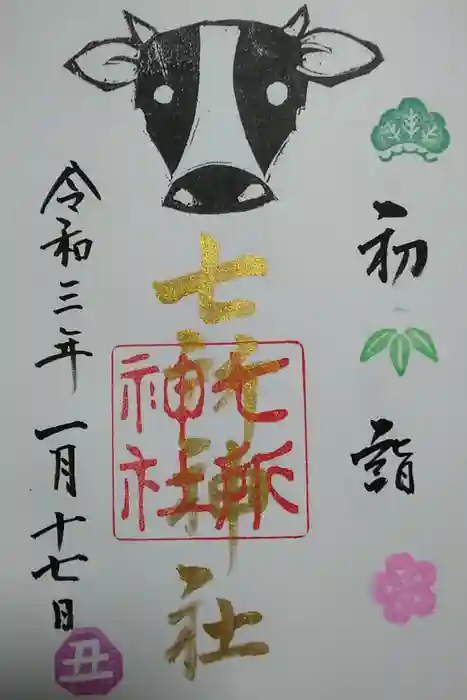 初詣
七所神社
七所神社
令和三年一月十七日
丑